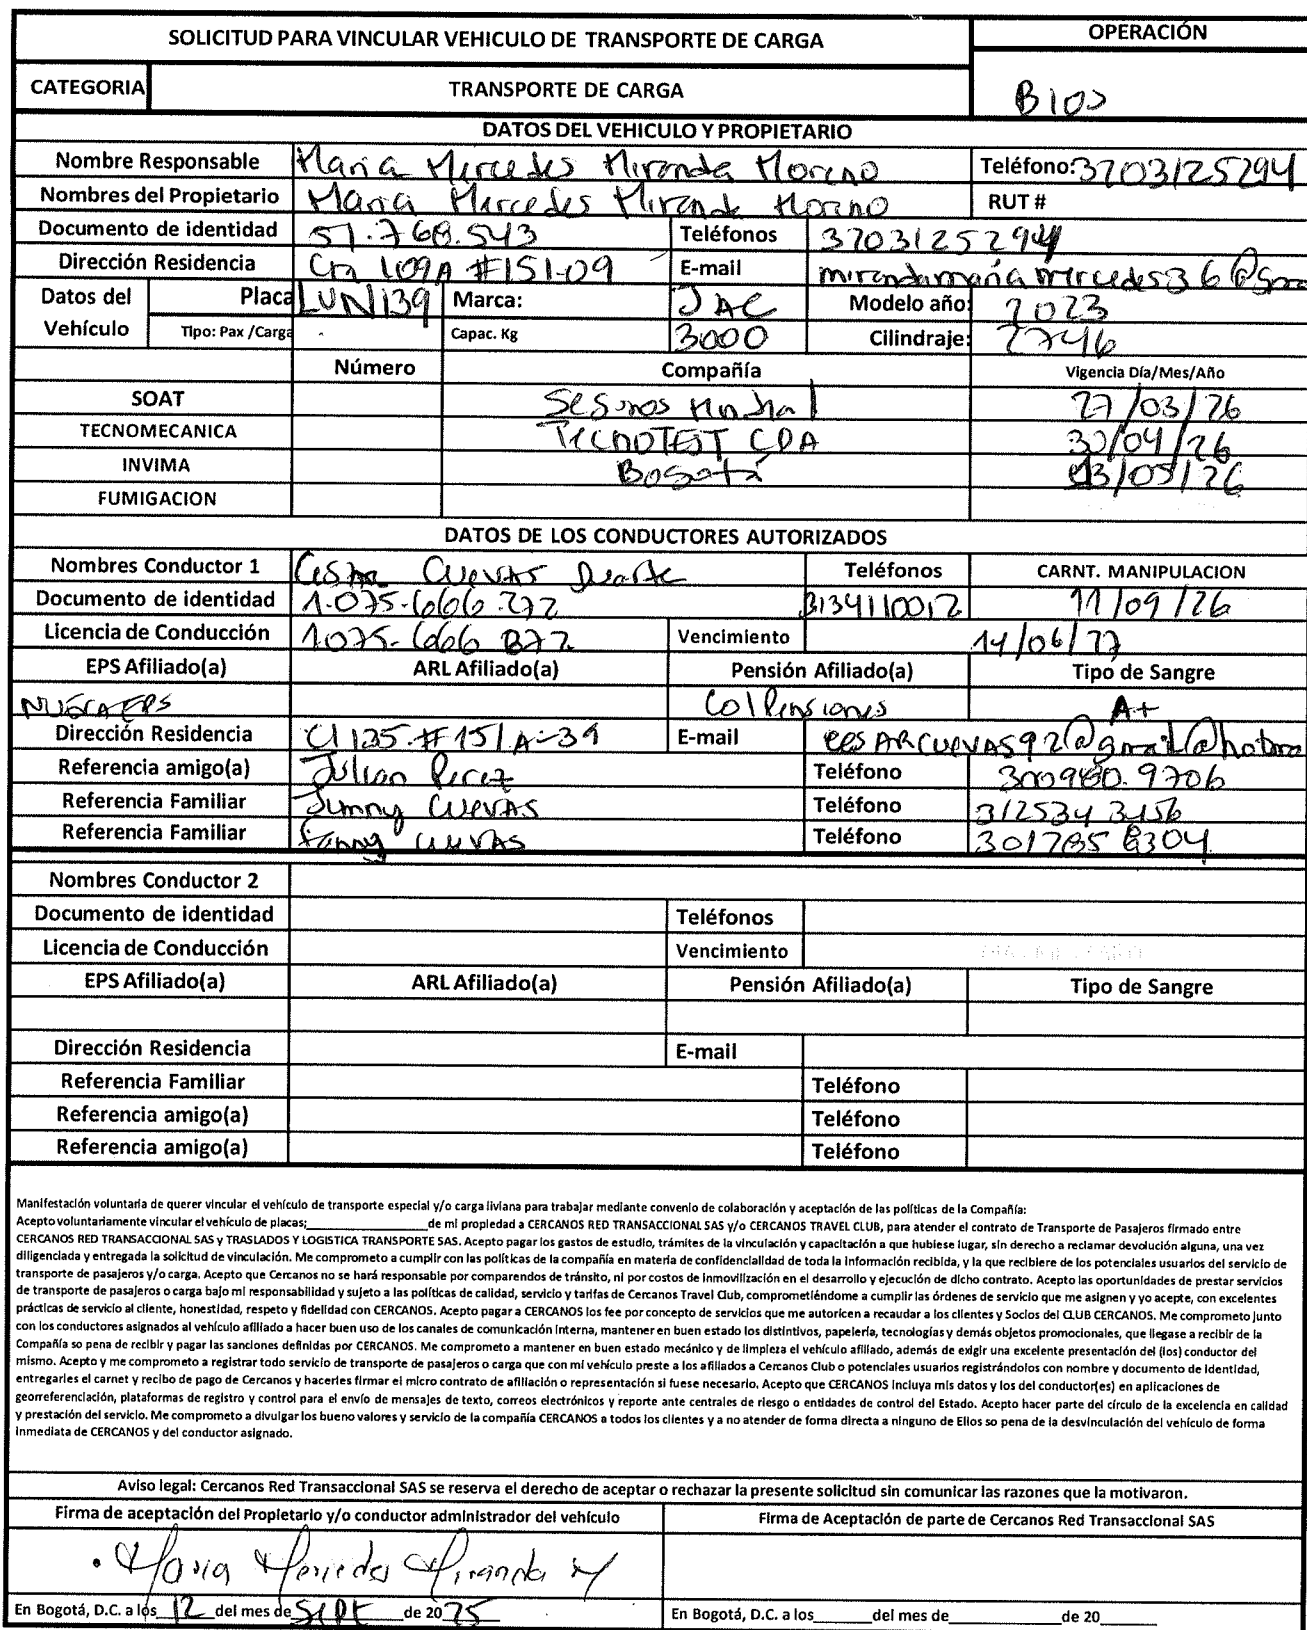 SOLICITUD PARA VINCULAR VEHICULO DE TRANSPORTE DE CARGA
OPERACIÓN
CATEGORIA TRANSPORTE DE CARGA BIOS
DATOS DEL VEHICULO Y PROPIETARIO
Nombre Responsable Maria Mercedes Miranda Moreno Teléfono: 3203125294
Nombres del Propietario Maria Mercedes Miranda Moreno RUT #
Documento de identidad 51.768.543 Teléfonos 3203125294
Dirección Residencia Cra 109A #151-09 E-mail mirandamariamercedes36@
Datos del Vehículo Placa LUN139 Marca: JAC Modelo año: 2023
Tipo: Pax /Carga Capac. Kg 3000 Cilindraje: 2746
Número Compañía Vigencia Día/Mes/Año
SOAT Seguros Mundial 27/03/26
TECNOMECANICA TECNOTEST CDA 30/04/26
INVIMA Bogotá /05/26
FUMIGACION
DATOS DE LOS CONDUCTORES AUTORIZADOS
Nombres Conductor 1 Cesar CUEVAS Duarte Teléfonos CARNT. MANIPULACION
Documento de identidad 1.075.666.272 3134110012 11/09/26
Licencia de Conducción 1075.666 872 Vencimiento 14/06/27
EPS Afiliado(a) ARL Afiliado(a) Pensión Afiliado(a) Tipo de Sangre
NUEVA EPS Colpensiones A+
Dirección Residencia Cl 135 #151A-39 E-mail CESARCUEVAS92@gmail@
Referencia amigo(a) Julian Perez Teléfono 300980.9706
Referencia Familiar Jimmy CUEVAS Teléfono 312534 3456
Referencia Familiar Fanny CUEVAS Teléfono 301785 8304
Nombres Conductor 2
Documento de identidad Teléfonos
Licencia de Conducción Vencimiento
EPS Afiliado(a) ARL Afiliado(a) Pensión Afiliado(a) Tipo de Sangre
Dirección Residencia E-mail
Referencia Familiar Teléfono
Referencia amigo(a) Teléfono
Referencia amigo(a) Teléfono
Manifestación voluntaria de querer vincular el vehículo de transporte especial y/o carga liviana para trabajar mediante convenio de colaboración y aceptación de las políticas de la Compañía:
Acepto voluntariamente vincular el vehículo de placas;____________________de mi propiedad a CERCANOS RED TRANSACCIONAL SAS y/o CERCANOS TRAVEL CLUB, para atender el contrato de Transporte de Pasajeros firmado entre
CERCANOS RED TRANSACCIONAL SAS y TRASLADOS Y LOGISTICA TRANSPORTE SAS. Acepto pagar los gastos de estudio, trámites de la vinculación y capacitación a que hubiese lugar, sin derecho a reclamar devolución alguna, una vez
diligenciada y entregada la solicitud de vinculación. Me comprometo a cumplir con las políticas de la compañía en materia de confidencialidad de toda la información recibida, y la que recibiere de los potenciales usuarios del servicio de
transporte de pasajeros y/o carga. Acepto que Cercanos no se hará responsable por comparendos de tránsito, ni por costos de inmovilización en el desarrollo y ejecución de dicho contrato. Acepto las oportunidades de prestar servicios
de transporte de pasajeros o carga bajo mi responsabilidad y sujeto a las políticas de calidad, servicio y tarifas de Cercanos Travel Club, comprometiéndome a cumplir las órdenes de servicio que me asignen y yo acepte, con excelentes
prácticas de servicio al cliente, honestidad, respeto y fidelidad con CERCANOS. Acepto pagar a CERCANOS los fee por concepto de servicios que me autoricen a recaudar a los clientes y Socios del CLUB CERCANOS. Me comprometo junto
con los conductores asignados al vehículo afiliado a hacer buen uso de los canales de comunicación interna, mantener en buen estado los distintivos, papelería, tecnologías y demás objetos promocionales, que llegase a recibir de la
Compañía so pena de recibir y pagar las sanciones definidas por CERCANOS. Me comprometo a mantener en buen estado mecánico y de limpieza el vehículo afiliado, además de exigir una excelente presentación del (los) conductor del
mismo. Acepto y me comprometo a registrar todo servicio de transporte de pasajeros o carga que con mi vehículo preste a los afiliados a Cercanos Club o potenciales usuarios registrándolos con nombre y documento de identidad,
entregarles el carnet y recibo de pago de Cercanos y hacerles firmar el micro contrato de afiliación o representación si fuese necesario. Acepto que CERCANOS incluya mis datos y los del conductor(es) en aplicaciones de
georreferenciación, plataformas de registro y control para el envío de mensajes de texto, correos electrónicos y reporte ante centrales de riesgo o entidades de control del Estado. Acepto hacer parte del círculo de la excelencia en calidad
y prestación del servicio. Me comprometo a divulgar los bueno valores y servicio de la compañía CERCANOS a todos los clientes y a no atender de forma directa a ninguno de Ellos so pena de la desvinculación del vehículo de forma
inmediata de CERCANOS y del conductor asignado.
Aviso legal: Cercanos Red Transaccional SAS se reserva el derecho de aceptar o rechazar la presente solicitud sin comunicar las razones que la motivaron.
Firma de aceptación del Propietario y/o conductor administrador del vehículo Firma de Aceptación de parte de Cercanos Red Transaccional SAS
Maria Mercedes Miranda M
En Bogotá, D.C. a los 12 del mes de SEPT de 2025 En Bogotá, D.C. a los______del mes de____________de 20______